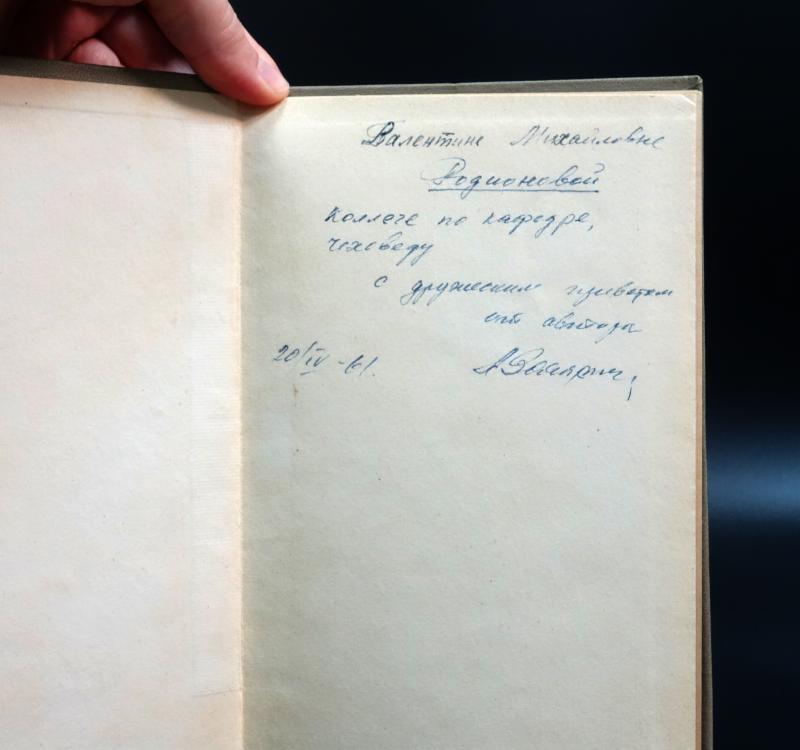 Валентине Михайловне
Родионовой
коллеге по кафедре,
чеховеду
с дружеским приветом
от автора
20/IV-61.